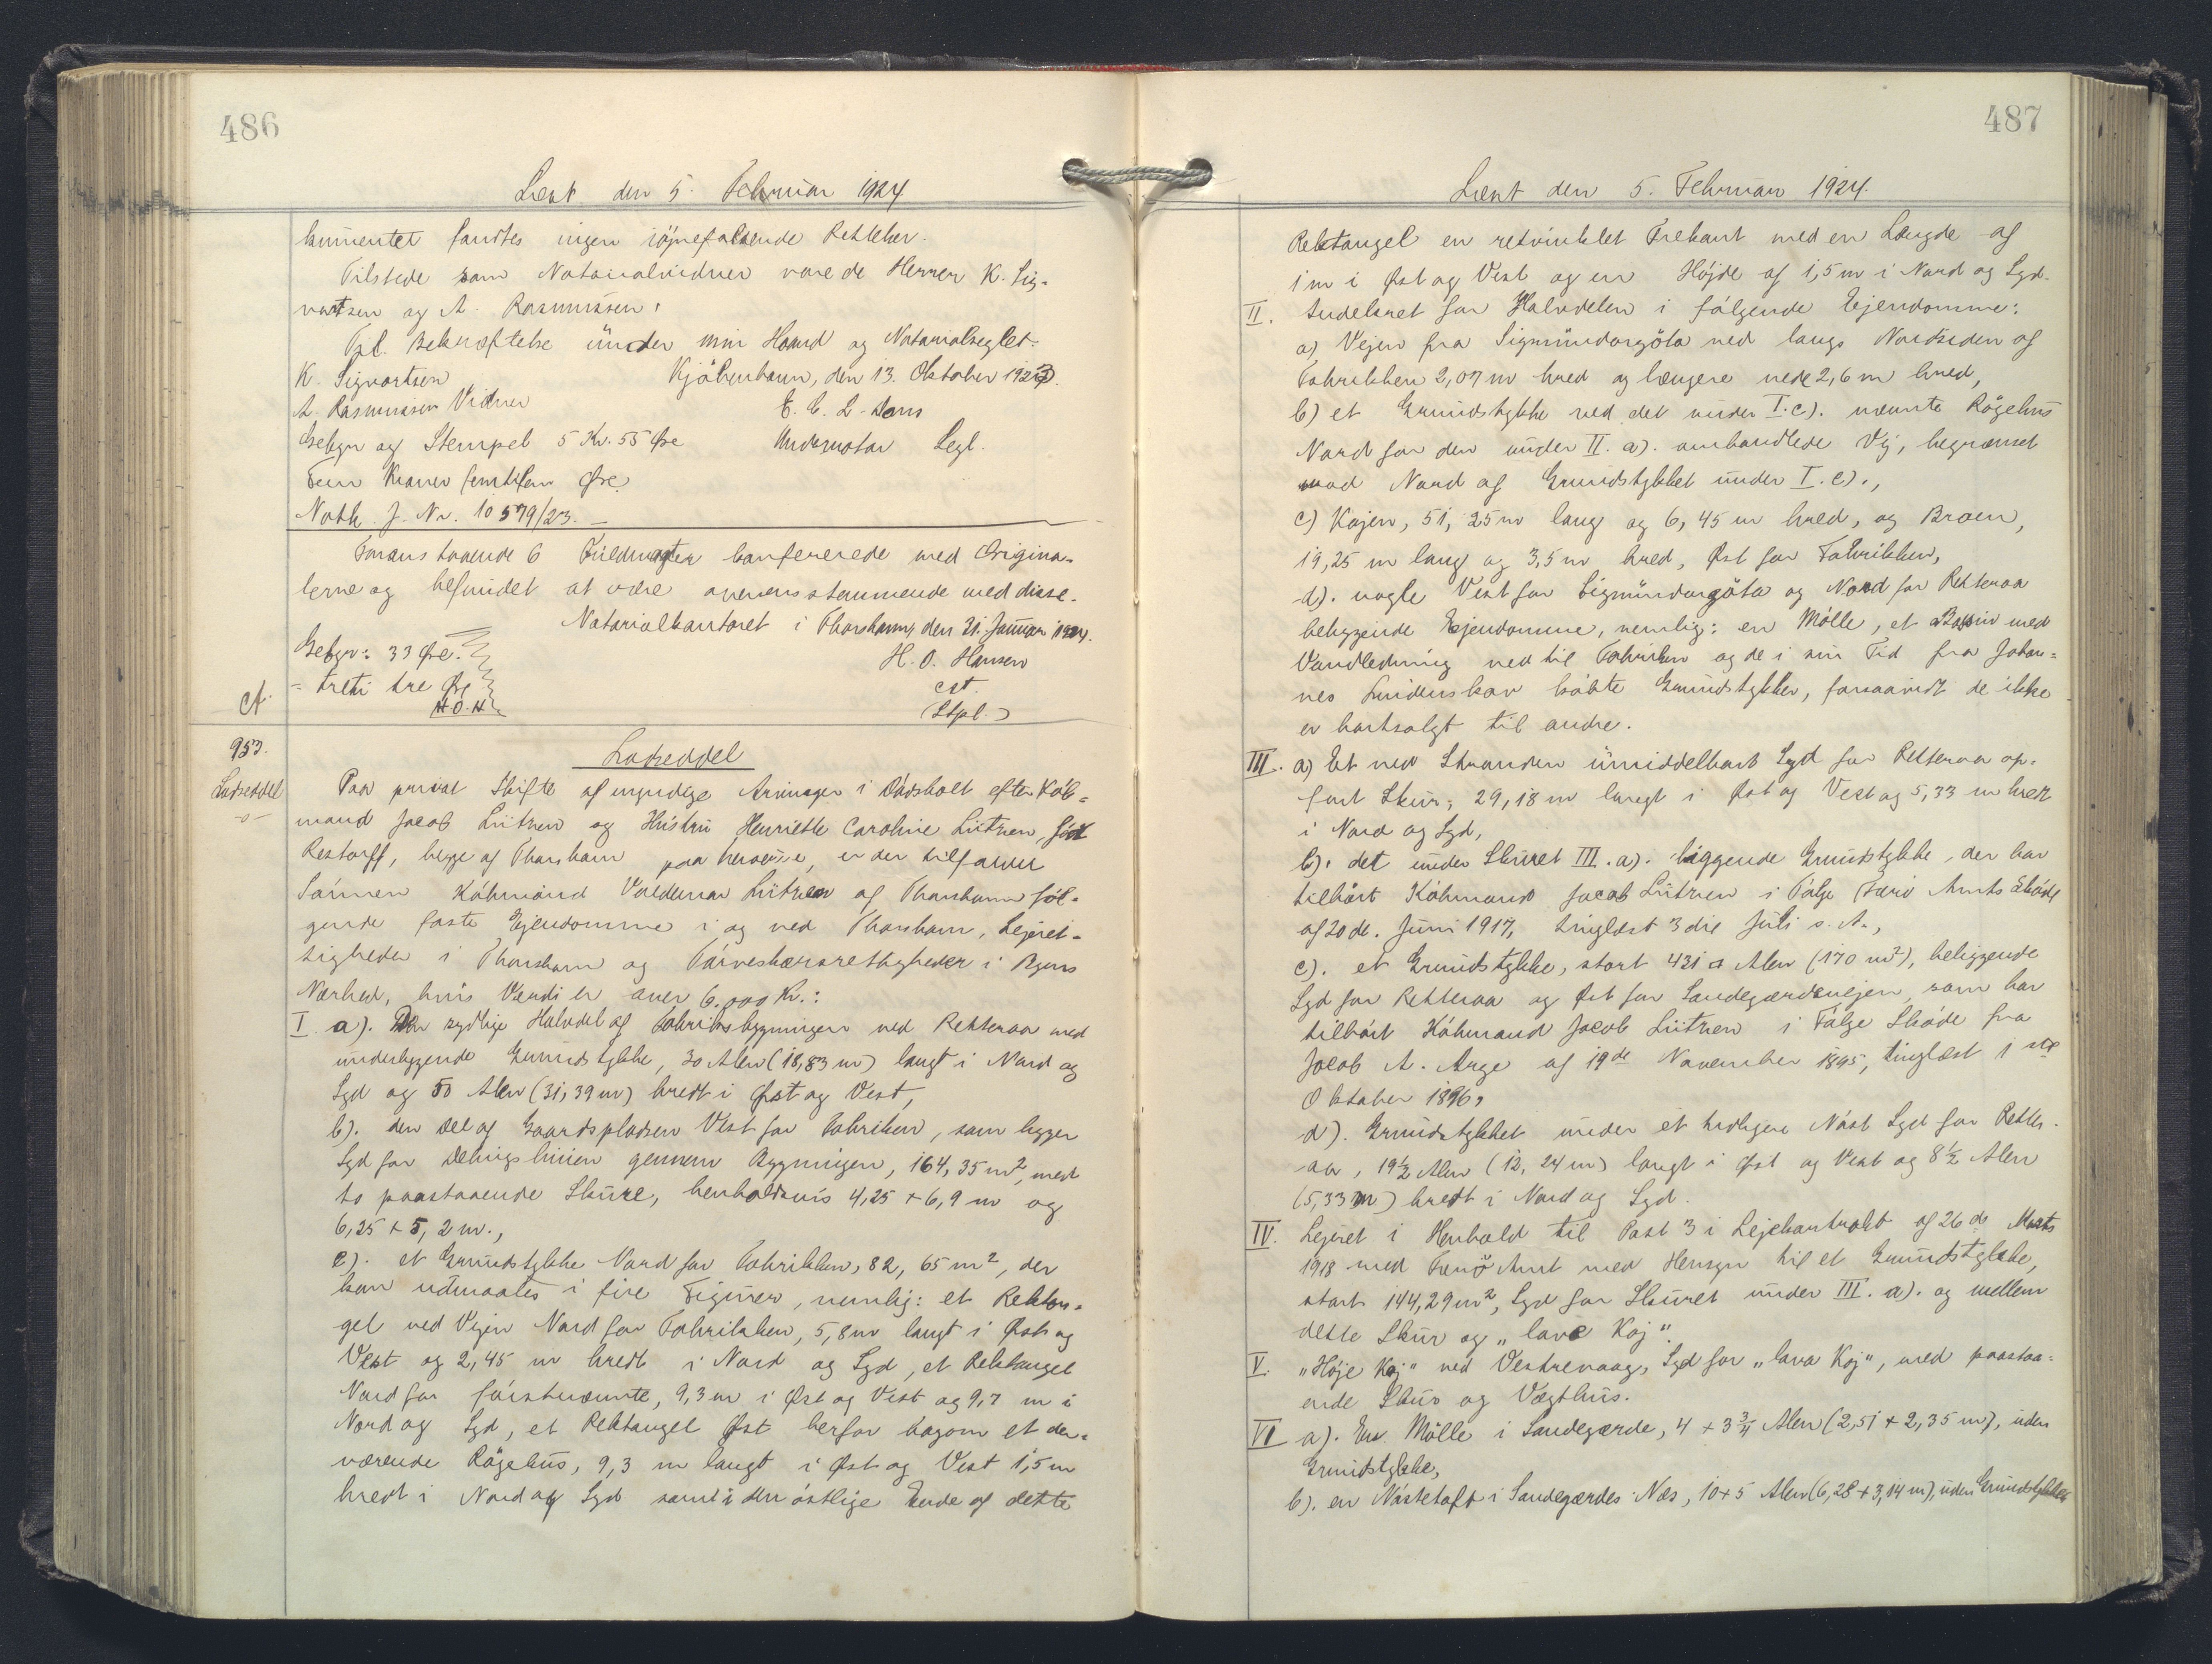 486
Læst den 5. Februar 1924
kumentet fandtes ingen iøjnefaldende Rettelser.
Tilstede som Notarialvidner vare de Herrer K. Sig-
vartsen og A. Rasmussen.
Til Bekræftelse under min Haand og Notarialseglet.
K. Sigvartsen Kjøbenhavn, den 13. Oktober 1923.
A. Rasmussen Vidner E. C. L.
Gebyr og Stempel 5 Kr. 55 Øre Undernotar Segl.
Fem Kroner femtifem Øre
Noth. J. Nr. 10579/23.
Foranstaaende 6 Fuldmagter konfererede med Origina-
lerne og befundet at være overensstemmende med disse.
Notarialkontoret i Thorshavn, den 31. Januar 1924.
Gebyr: 33 Øre. H. O. Hansen
= treti tre Øre cst.
H.O.H. (Stpl.)
953.
Lodseddel
Lodseddel
Paa privat Skifte af myndige Arvinger i Dødsboet efter Køb-
mand Jacob Lützen og Hustru Henriette Caroline Lützen, født
Restorff, begge af Thorshavn er der tilfaldet
Sønnen Købmand Valdemar Lützen af Thorshavn føl-
gende faste Ejendomme i og ved Thorshavn, Lejeret-
tigheder i Thorshavn og Tørveskærsrettigheder i Byens
Nærhed, hvis Værdi er over 6.000 Kr.:
I a). Den sydlige Halvdel af Fabriksbygningen ved Retteraa med
underliggende Grundstykke, 30 Alen (18,83 m) langt i Nord og
Syd og 50 Alen (31,39 m) bredt i Øst og Vest,
b). den Del af Gaardspladsen Vest for Fabriken, som ligger
Syd for Delingslinien gennem Bygningen, 164,35 m², med
to paastaaende Skure, henholdsvis 4,25 + 6,9 m og
6,25 + 5,2 m.,
c). et Grundstykke Nord for Fabrikken, 82,65 m², der
kan udmaales i fire Figurer, nemlig: et Rektan-
gel ved Vejen Nord for Fabrikken, 5,8 m langt i Øst og
Vest og 2,45 m bredt i Nord og Syd, et Rektangel
Nord for førstnævnte, 9,3 m i Øst og Vest og 9,7 m i
Nord og Syd, et Rektangel Øst herfor bagom et der-
værende Røgehus, 9,3 m langt i Øst og Vest 1,5 m
bredt i Nord og Syd samt i den østlige Ende af dette
487
Læst den 5. Februar 1924.
Rektangel en retvinklet Trekant med en Længde af
1 m i Øst og Vest og en Højde af 1,5 m i Nord og Syd.
II. Andelsret for Halvdelen i følgende Ejendomme:
a) Vejen fra Sigmundargøta ned langs Nordsiden af
Fabrikken 2,07 m bred og længere nede 2,6 m bred,
b) et Grundstykke ved det under I.c). nævnte Røgehus
Nord for den under II. a). omhandlede Vej, begrænset
mod Nord af Grundstykket under I. c).,
c) Kajen, 51,25 m lang og 6,45 m bred, og Broen,
19,25 m lang og 3,5 m bred, Øst for Fabrikken,
d). nogle Vest for Sigmundargøta og Nord for Retteraa
beliggende Ejendomme, nemlig: en Mølle, et Bassin med
Vandledning ned til Fabriken og de i sin Tid fra Johan-
nes Lindenskov købte Grundstykker, forsaavidt de ikke
er bortsolgt til andre.
III. a) Et ved Stranden umiddelbart Syd for Retteraa op-
ført Skur, 29,18 m langt i Øst og Vest og 5,33 m bredt
i Nord og Syd,
b). det under Skuret III. a). liggende Grundstykke, der har
tilhørt Købmand Jacob Lützen i Følge Færø Amts Skøde
af 20de. Juni 1917, tinglæst 3die Juli s. A.,
c). et Grundstykke, stort 431 □ Alen (170 m²), beliggende
Syd for Retteraa og Øst for Sandegærdsvejen, som har
tilhørt Købmand Jacob Lützen i Følge Skøde fra
Jacob A. Arge af 19de November 1895, tinglæst 1ste
Oktober 1896,
d). Grundstykket under et tidligere Nøst Syd for Retter-
aa, 19½ Alen (12,24 m) langt i Øst og Vest og 8½ Alen
(5,33 m) bredt i Nord og Syd.
IV. Lejeret i Henhold til Post 3 i Lejekontrakt af 26de Marts
1918 med Færø Amt med Hensyn til et Grundstykke,
stort 144,29 m², Syd for Skuret under III. a). og mellem
dette Skur og "lave Kaj".
V. "Høje Kaj" ved Vestrevaag, Syd for "lava Kaj", med paastaa-
ende Skur og Vægthus.
VI a). En Mølle i Sandegærde, 4 + 3¾ Alen (2,51 + 2,35 m), uden
Grundstykke,
b). en Nøstetoft i Sandegærdes Næs, 10+5 Alen (6,28+3,14 m), uden Grundstykke